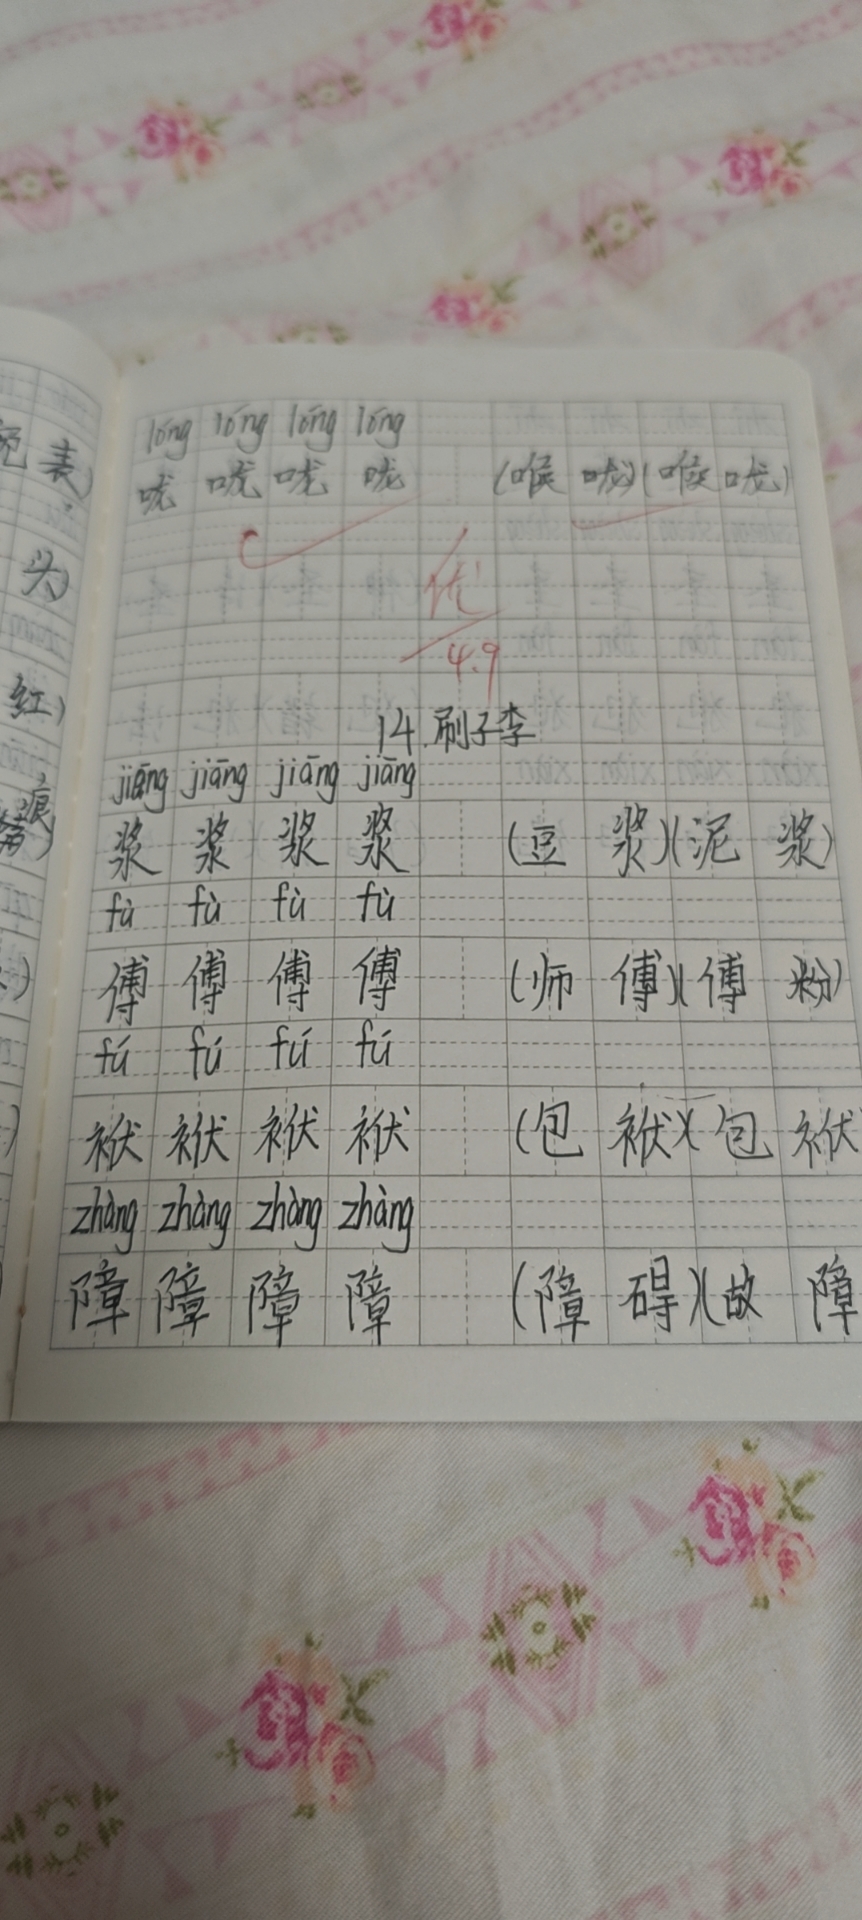 lóng lóng lóng lóng
咙 咙 咙 咙 (喉咙)(喉咙)
优
4.9
14.刷子李
jiāng jiāng jiāng jiāng
浆 浆 浆 浆 (豆浆)(泥浆)
fù fù fù fù
傅 傅 傅 傅 (师傅)(傅粉)
fú fú fú fú
袱 袱 袱 袱 (包袱)(包袱
zhàng zhàng zhàng zhàng
障 障 障 障 (障碍)(故障
表)
头)
红)
痕